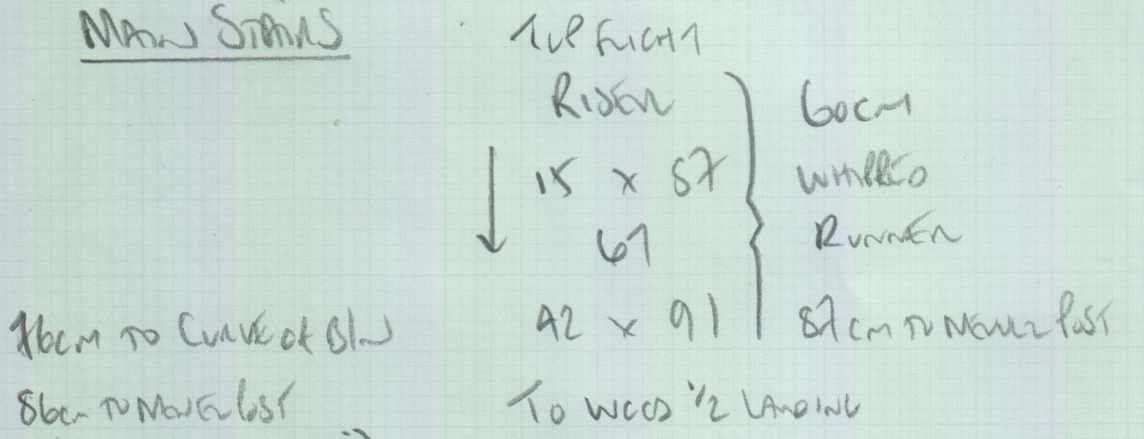 MAIN STAIRS
TOP FLIGHT
RISER
15 x 87
67
42 x 91
60cm
WHIPPED
RUNNER
87cm TO NEWEL POST
76cm TO CURVE OF B/N
86cm TO NEWEL POST
TO WOOD 1/2 LANDING